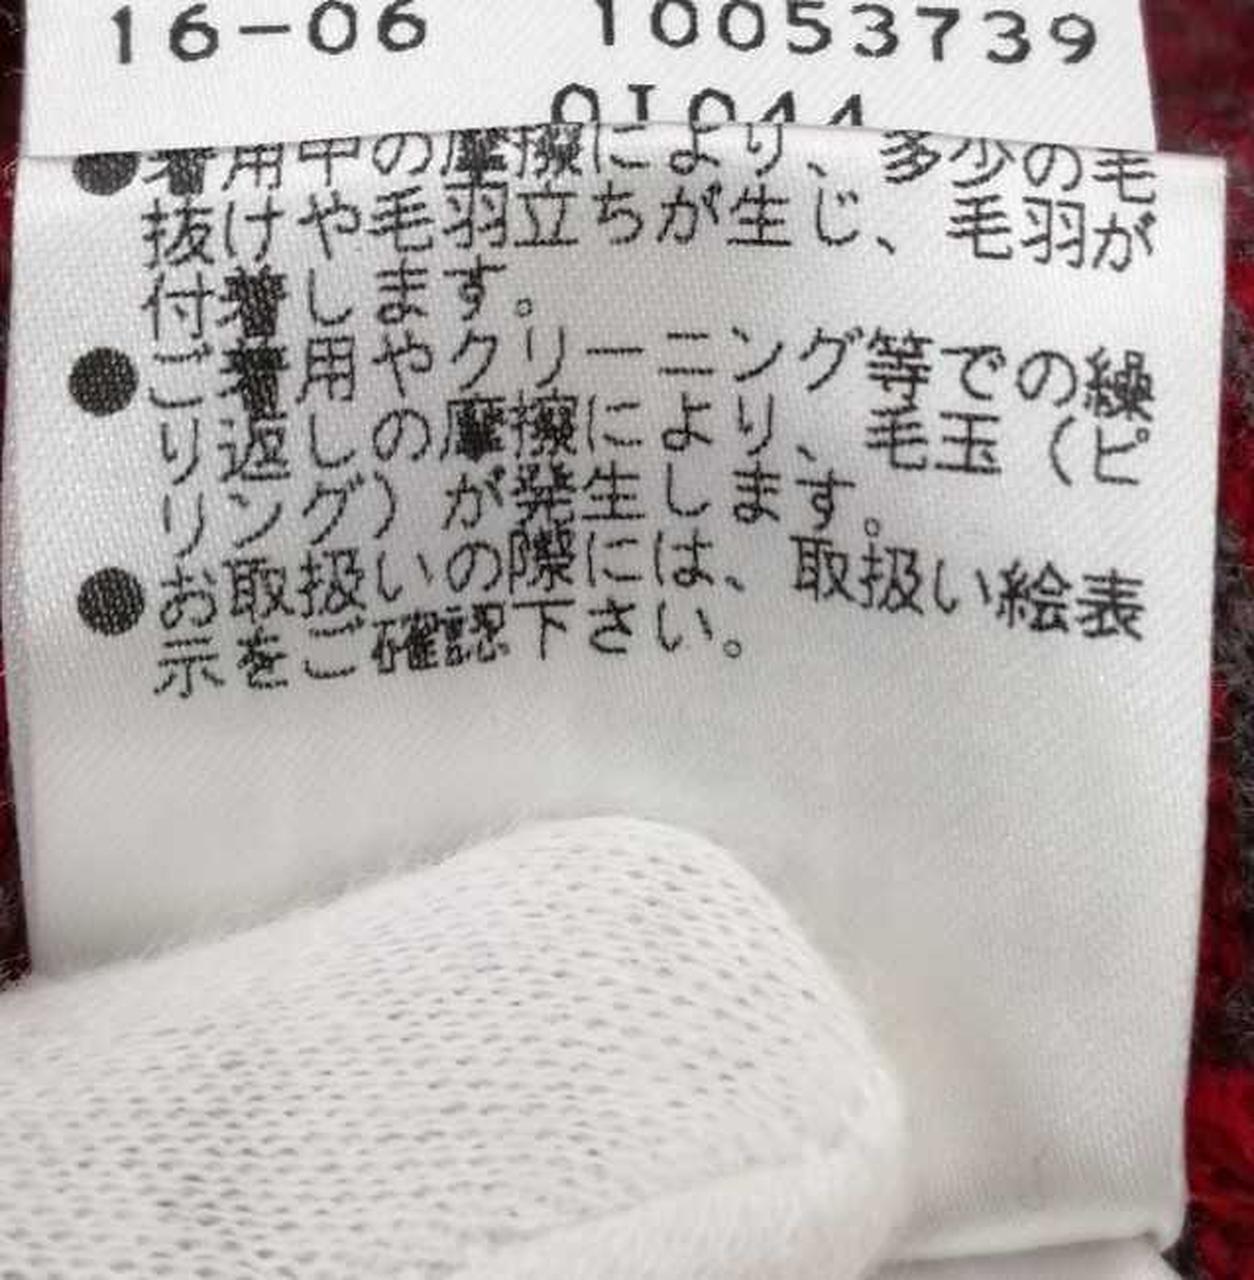 16-06 10053739
●着用中の摩擦により、多少の毛
抜けや毛羽立ちが生じ、毛羽が
付着します。
●ご着用やクリーニング等での繰
り返しの摩擦により、毛玉（ピ
リング）が発生します。
●お取扱いの際には、取扱い絵表
示をご確認下さい。